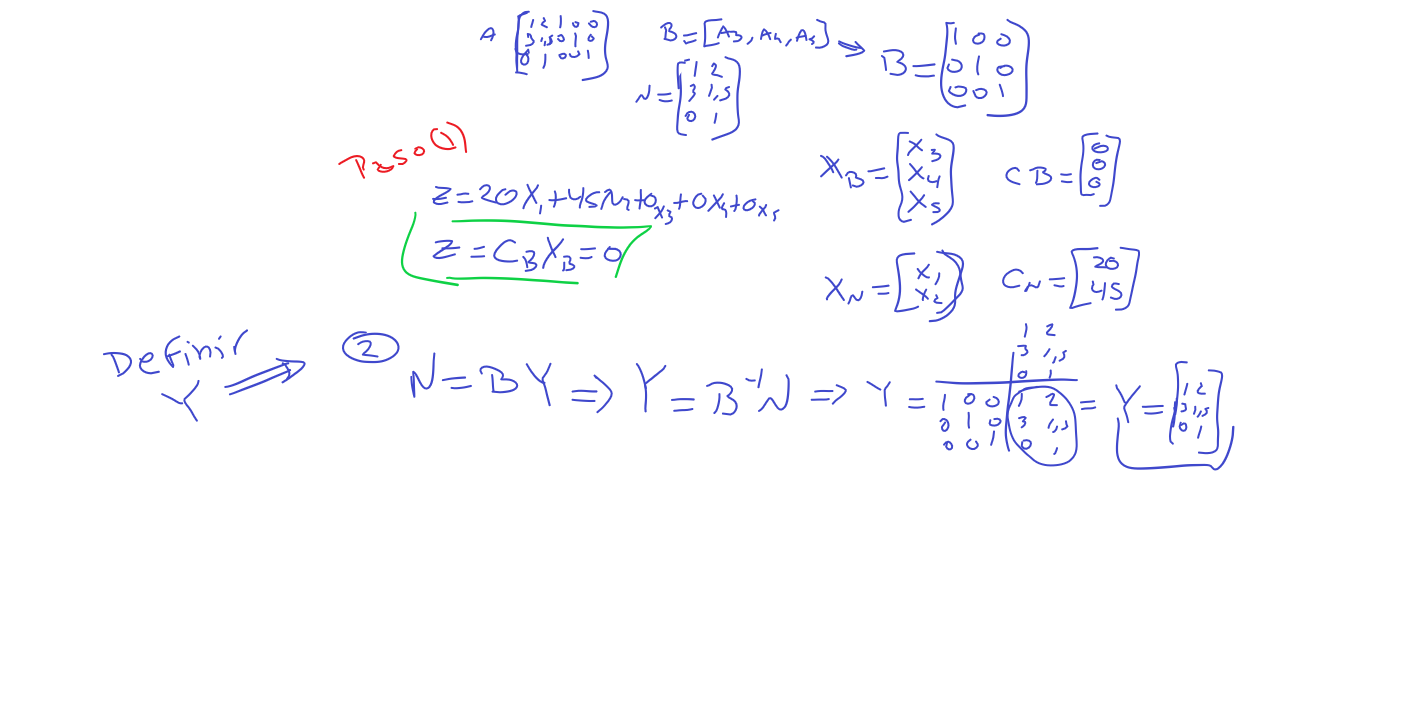 A [1 2 1 0 0
3 1,5 0 1 0
0 1 0 0 1]
B = [A3, A4, A5] ⇒ B = [1 0 0
0 1 0
0 0 1]
N = [1 2
3 1,5
0 1]
Paso (1)
Z = 20X1 + 45X2 + 0X3 + 0X4 + 0X5
Z = CB XB = 0
XB = [X3
X4
X5]
CB = [0
0
0]
XN = [X1
X2]
CN = [20
45]
Definir
Y ⇒
② N = BY ⇒ Y = B⁻¹N ⇒ Y =
1 2
3 1,5
0 1
1 0 0 1 2
0 1 0 3 1,5
0 0 1 0 1
= Y = [1 2
3 1,5
0 1]